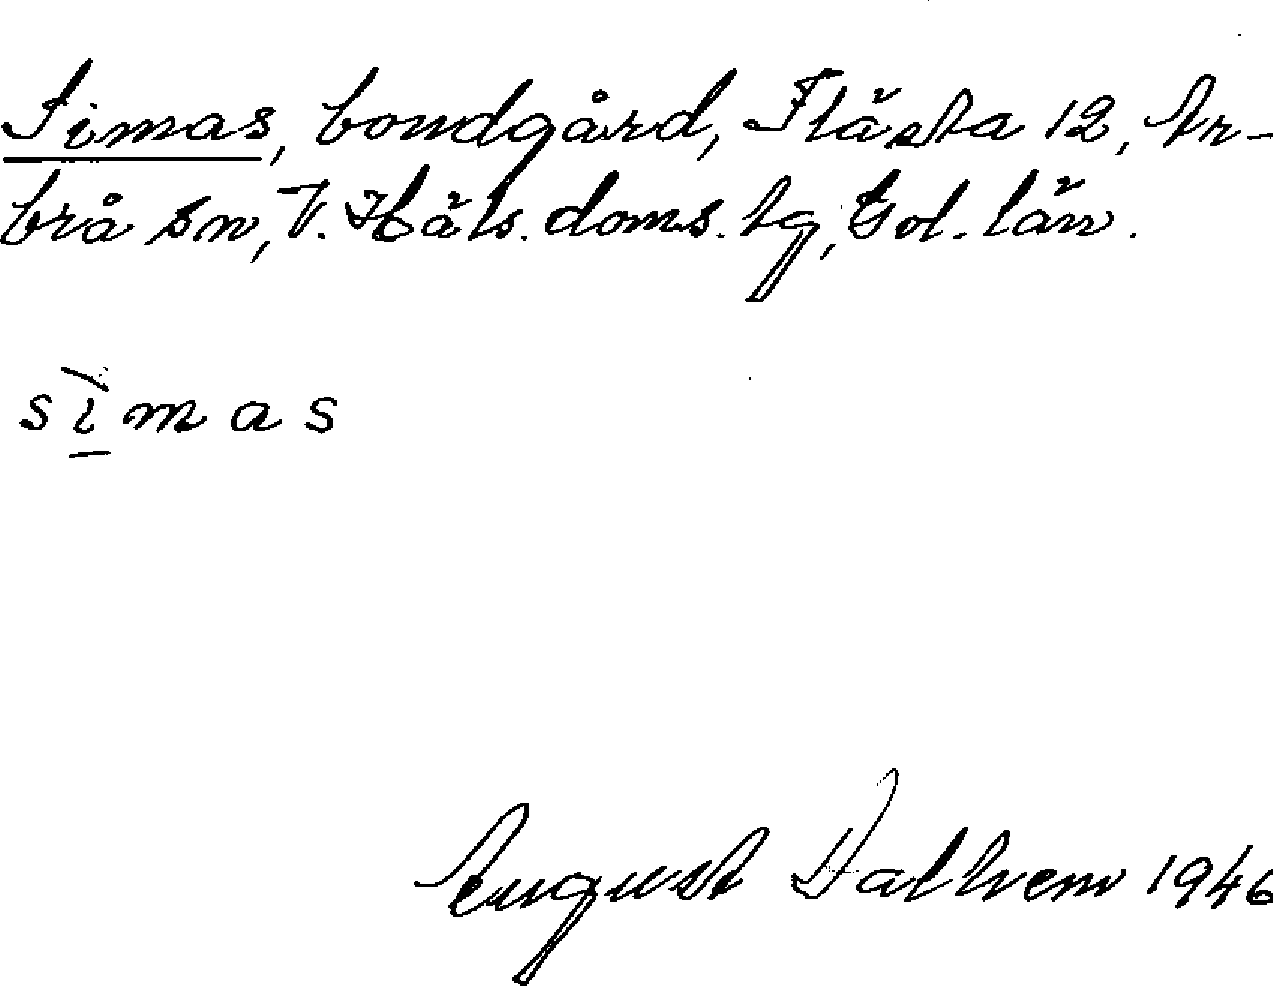 Simas, bondgård, Flästa 12, Ar-
brå sn, V. Häls. doms. lg, Gvl. län.
sìmas
August Dalhem 1946